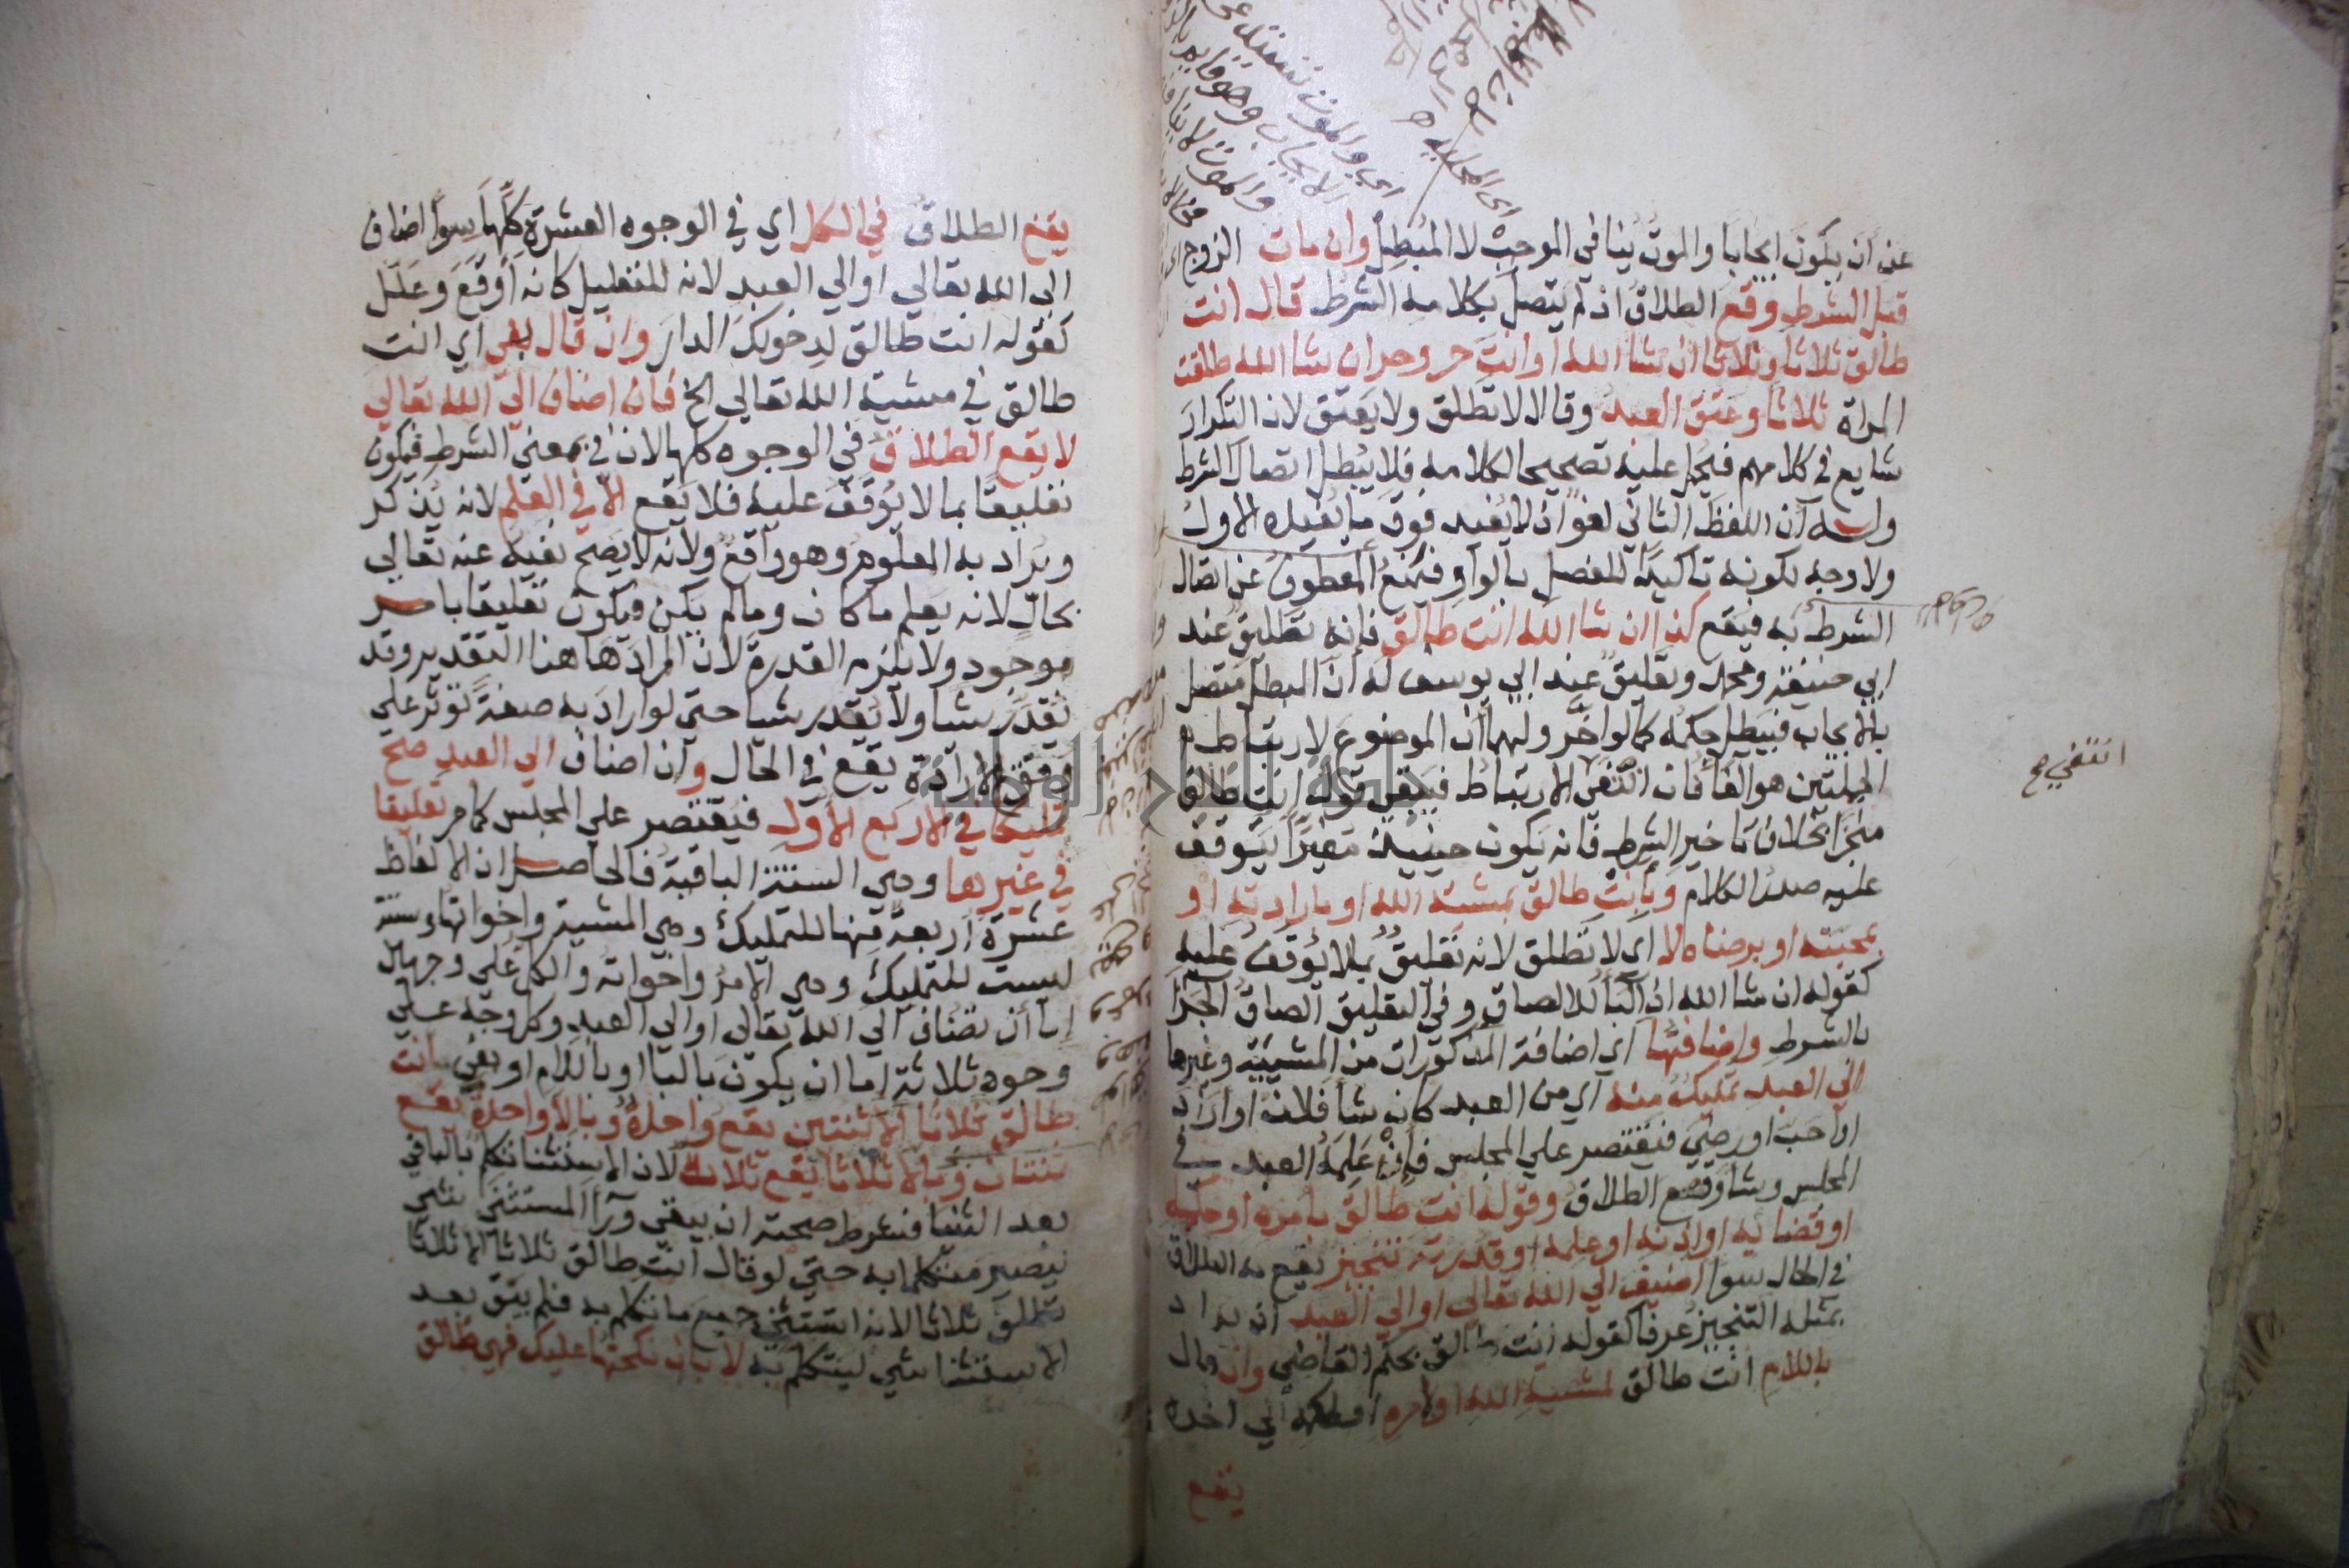 عن ان يكون ايجابا والموت ينافي الموجب لا المبطل وان مات الزوج
قبل الشرط وقع الطلاق اذ لم يتصل بكلامه الشرط قال انت
طالق ثلاثا وثلاثا ان شا الله او انت حر وحر ان شا الله طلقت
المراة ثلاثا وعتق العبد وقالا لا تطلق ولا يعتق لان التكرار
شايع في كلامهم فيحمل عليه تصحيحا لكلامه فلا يبطل اتصال الشرط
وله ان اللفظ الثاني لغو اذ لا يفيد فوق ما يفيده الاول
ولا وجه لكونه تاكيدا للفصل بالواو فيمنع المعطوف عن اتصال
الشرط به فيقع كذا ان شا الله انت طالق فانه تطليق عند
ابي حنيفة ومحمد وتعليق عند ابي يوسف له ان المبطل متصل
بالايجاب فيبطل حكمه كما لو اخر ولهما ان الموضوع لارتباط
الجملتين هو الفا فان انتفى الارتباط فيبقى قوله انت طالق
منجزا بخلاف تاخير الشرط فانه يكون حينيذ مغيرا يتوقف
عليه صدر الكلام وبانت طالق بمشية الله او بارادته او
بمحبته او برضاه لا اي لا تطلق لانه تعليق بما لا يوقف عليه
كقوله ان شا الله اذ البا للالصاق وفي التعليق الصاق الجزا
بالشرط واضافتها اي اضافة المذكورات من المشيية وغيرها
الي العبد تمليك منه اي من العبد كان شا فلان او اراد
او احب او رضي فيقتصر علي المجلس فان علم العبد في
المجلس وشا وقع الطلاق وقوله انت طالق بامره او حكمه
او قضايه او اذنه او علمه او قدرته تنجيز يقع به الطلاق
في الحال سوا اضيف الي الله تعالي او الي العبد اذ يراد
بمثله التنجيز عرفا كقوله انت طالق بحكم القاضي وان قال
باللام انت طالق لمشية الله او لامره او لحكمه الي اخره
يقع
انتفي صح
يقع الطلاق في الكل اي في الوجوه العشرة كلها سوا اضاف
الي الله تعالي او الي العبد لانه للتعليل كانه اوقع وعلل
كقوله انت طالق لدخولك الدار وان قال بفي اي انت
طالق في مشية الله تعالي الخ فان اضاف الي الله تعالي
لا يقع الطلاق في الوجوه كلها لان في بمعني الشرط فيكون
تعليقا بما لا يوقف عليه فلا يقع الا في العلم لانه يذكر
ويراد به المعلوم وهو واقع ولانه لا يصح نفيه عنه تعالي
بحال لانه يعلم ما كان وما لم يكن فيكون تعليقا بامر
موجود ولا يلزم القدرة لان المراد هاهنا التقدير وقد
يقدر شيا ولا يقدر شيا حتى لو اراد به صفة تؤثر علي
وفق الارادة يقع في الحال وان اضاف الي العبد صح
تمليكا في الاربع الاول فيقتصر علي المجلس كما مر تعليقا
في غيرها وهي الستة الباقية فالحاصل ان الالفاظ
عشرة اربعة منها للتمليك وهي المشية واخواتها وستة
ليست للتمليك وهي الامر واخواته والكل علي وجهين
اما ان تضاف الي الله تعالى او الي العبد وكل وجه علي
وجوه ثلاثة اما ان يكون بالبا او باللام او بفي بانت
طالق ثلاثا الا ثنتين يقع واحدة وبالا واحدة يقع
ثنتان وبالا ثلاثا يقع ثلاث لان الاستثنا تكلم بالباقي
بعد الثنيا فشرط صحته ان يبقي ورآ المستثني شي
يصير متكلما به حتي لو قال انت طالق ثلاثا الا ثلاثا
تطلق ثلاثا لانه استثني جميع ما تكلم به فلم يبق بعد
الاستثنا شي ليتكلم به لا بان نكحتها عليك فهي طالق